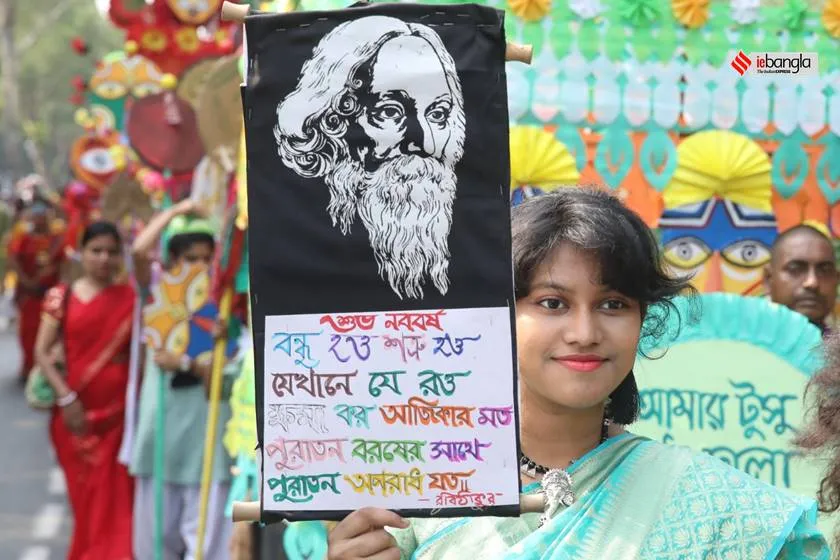 iebangla
The Indian EXPRESS
শুভ নববর্ষ
বন্ধু হও শত্রু হও
যেখানে যে রও
ক্ষমা কর আজিকার মত
পুরাতন বরষের সাথে
পুরাতন অপরাধ যত॥
- রবিঠাকুর -
আমার টুসু